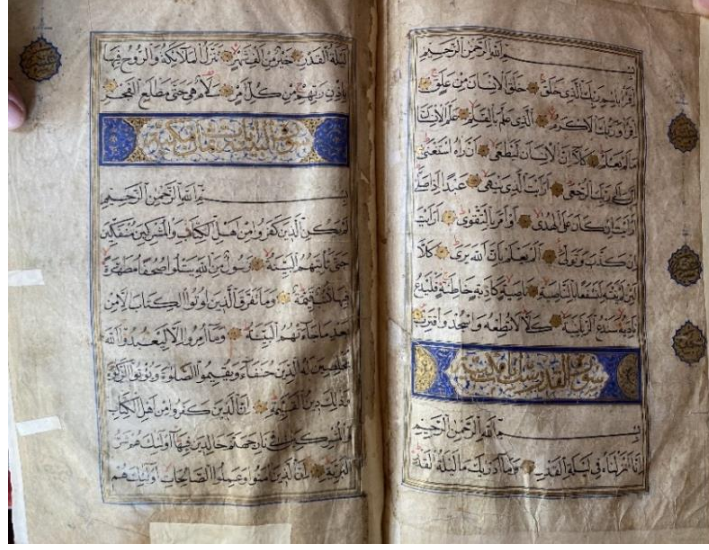 بسم الله الرحمن الرحيم
اقرأ باسم ربك الذي خلق خلق الانسان من علق
اقرأ وربك الاكرم الذي علم بالقلم علم الانسان
ما لم يعلم كلا ان الانسان ليطغى ان رآه استغنى
ان الى ربك الرجعى ارأيت الذي ينهى عبدا اذا صلى
ارأيت ان كان على الهدى او امر بالتقوى ارأيت
ان كذب وتولى الم يعلم بان الله يرى كلا
لئن لم ينته لنسفعا بالناصية ناصية كاذبة خاطئة فليدع
ناديه سندع الزبانية كلا لا تطعه واسجد واقترب
سورة القدر
بسم الله الرحمن الرحيم
انا انزلناه في ليلة القدر وما ادريك ما ليلة القدر
ليلة القدر خير من الف شهر تنزل الملائكة والروح فيها
باذن ربهم من كل امر سلام هي حتى مطلع الفجر
سورة البينة
بسم الله الرحمن الرحيم
لم يكن الذين كفروا من اهل الكتاب والمشركين منفكين
حتى تأتيهم البينة رسول من الله يتلوا صحفا مطهرة
فيها كتب قيمة وما تفرق الذين اوتوا الكتاب الا من
بعد ما جاءتهم البينة وما امروا الا ليعبدوا الله
مخلصين له الدين حنفاء ويقيموا الصلوة ويؤتوا الزكوة
وذلك دين القيمة ان الذين كفروا من اهل الكتاب
والمشركين في نار جهنم خالدين فيها اولئك هم شر
البرية ان الذين آمنوا وعملوا الصالحات اولئك هم